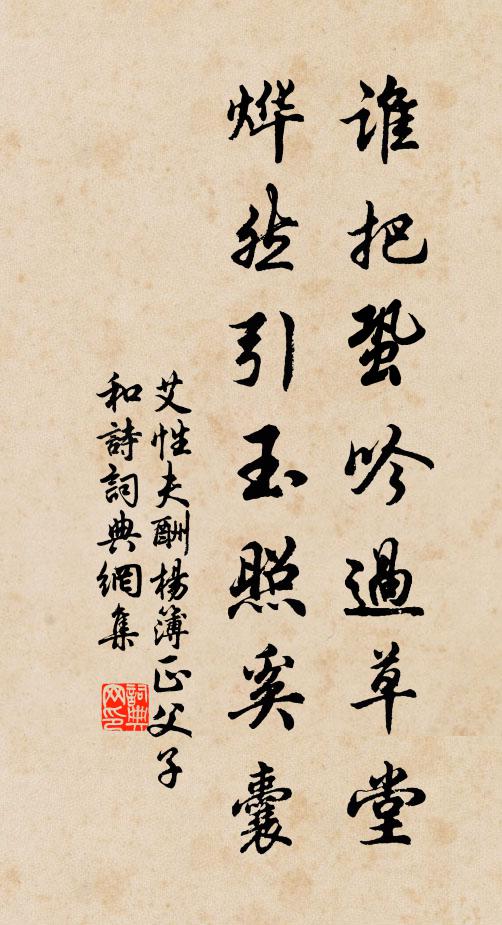 誰把蛩吟過草堂
烨然引玉照奚囊
艾性夫酬楊簿正父子
和詩詞典網集
詞典
网印